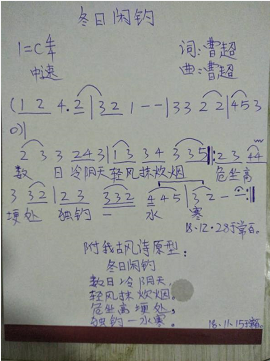 冬日闲钓
1=C 4/4 词:曹超
中速 曲:曹超
(1 2 4.2|3 2 1 --|3 3 2 2|4 5 3
0)|
2 3 3 2 4 3|1 3 3 4 3 3 5|:2 3 4 4
数 日冷阴天轻风抹炊烟 危坐高
3 3 2|2 3 3 3 2 4 4 5|3 2 - -:|
埂处 独钓 一 水 寒
18.12.28于常百.
附我古风诗原型:
冬日闲钓
数日冷阴天,
轻风抹炊烟.
危坐高埂处,
独钓一水寒。
18.11.15